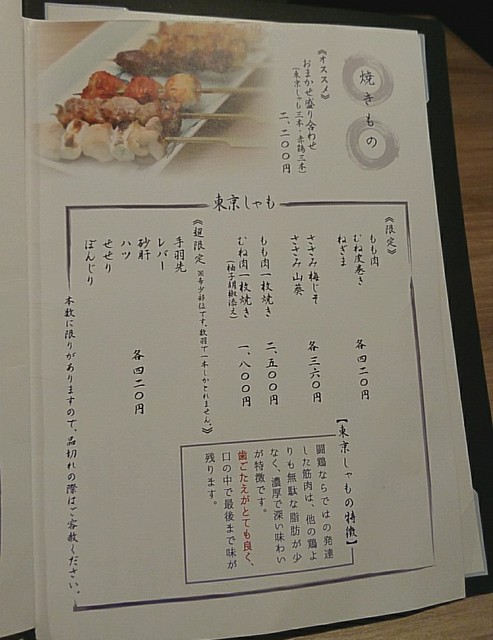 焼きもの
《オススメ》
おまかせ盛り合わせ
(東京しゃも三本・赤鶏三本)
二、二〇〇円
東京しゃも
《限定》
もも肉
むね皮巻き
ねぎま
各四二〇円
ささみ梅じそ
ささみ山葵
各三六〇円
もも肉一枚焼き
二、五〇〇円
むね肉一枚焼き
(柚子胡椒添え)
一、八〇〇円
《超限定 ※希少部位です。数羽で一本しかとれません。》
手羽先
レバー
砂肝
ハツ
せせり
ぼんじり
各四二〇円
本数に限りがありますので、品切れの際はご容赦ください。
【東京しゃもの特徴】
闘鶏ならではの発達
した筋肉は、他の鶏よ
りも無駄な脂肪が少
なく、濃厚で深い味わい
が特徴です。
歯ごたえがとても良く、
口の中で最後まで味が
残ります。